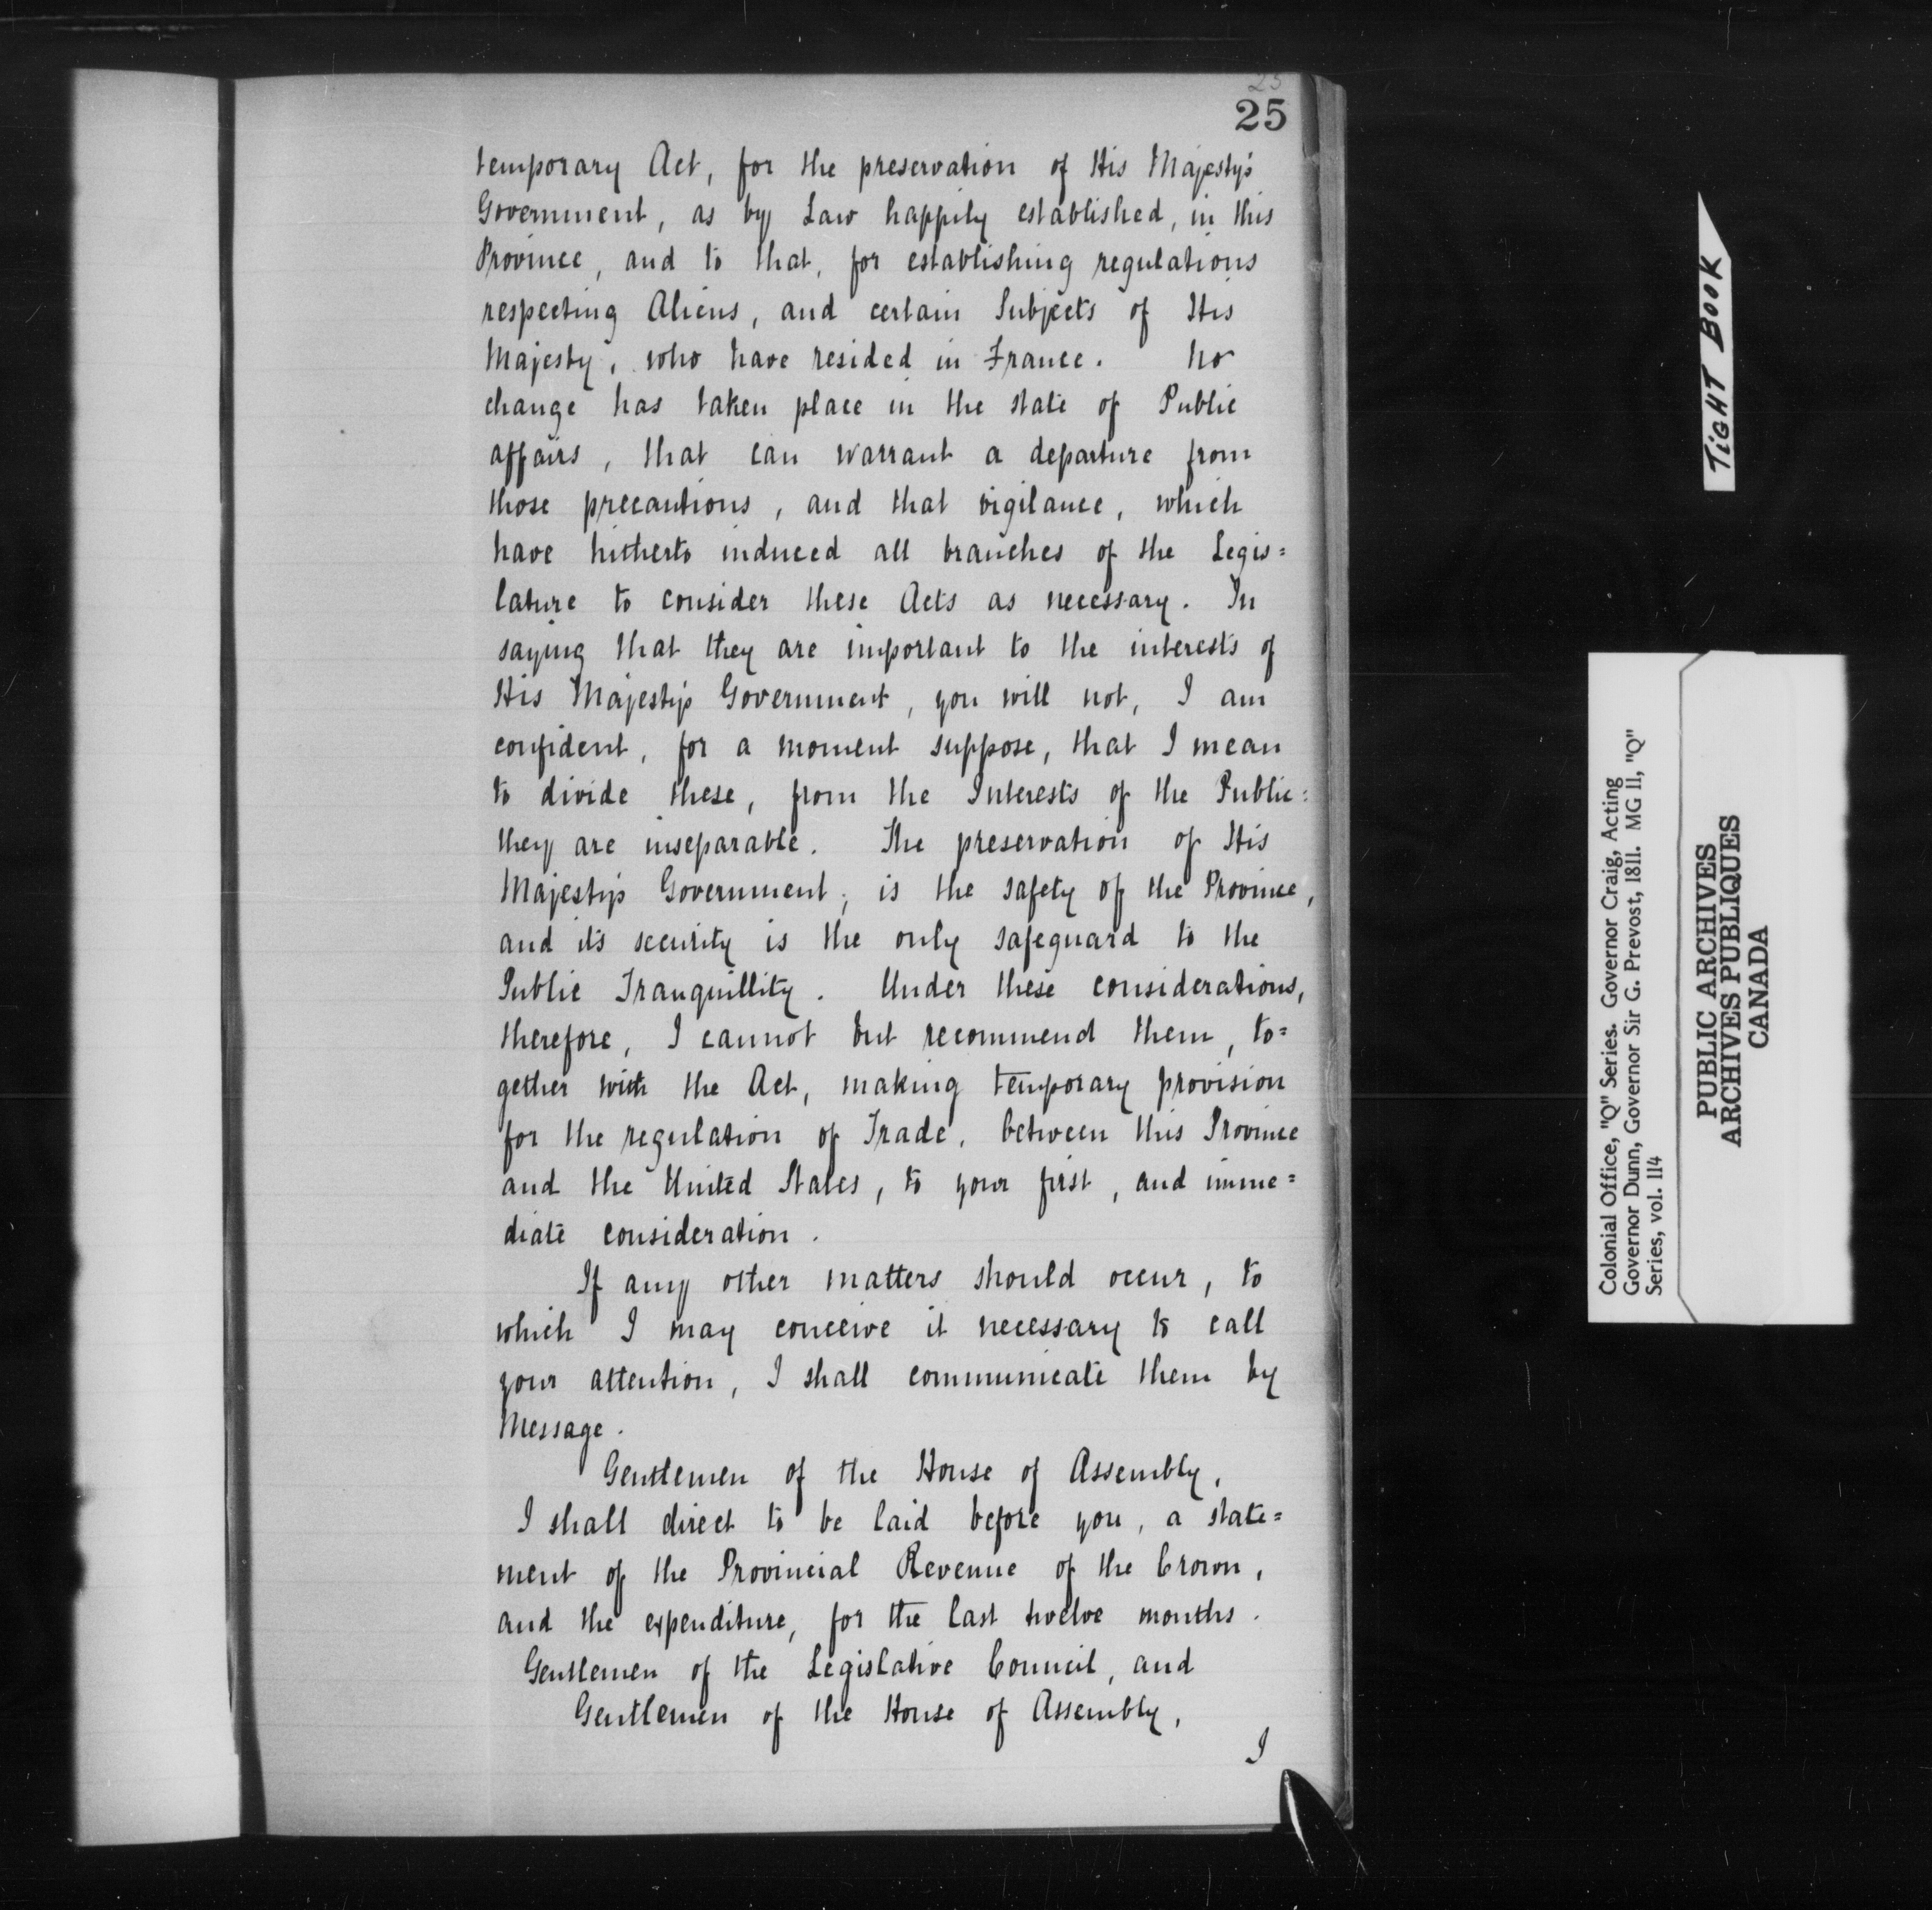 25
25
temporary Act, for the preservation of His Majesty's
Government, as by Law happily established, in this
Province, and to that, for establishing regulations
respecting Aliens, and certain Subjects of His
Majesty, who have resided in France. No
change has taken place in the state of Public
affairs, that can warrant a departure from
those precautions, and that vigilance, which
have hitherto induced all branches of the Legis=
lature to consider these Acts as necessary. In
saying that they are important to the interests of
His Majesty's Government, you will not, I am
confident, for a moment suppose, that I mean
to divide these, from the Interests of the Public:
they are inseparable. The preservation of His
Majesty's Government, is the safety of the Province,
and its security is the only safeguard to the
Public Tranquillity. Under these considerations,
therefore, I cannot but recommend them, to=
gether with the Act, making temporary provision
for the regulation of Trade, between this Province
and the United States, to your first, and imme=
diate consideration.
If any other matters should occur, to
which I may conceive it necessary to call
your attention, I shall communicate them by
Message.
Gentlemen of the House of Assembly,
I shall direct to be laid before you, a state=
ment of the Provincial Revenue of the Crown,
and the expenditure, for the last twelve months.
Gentlemen of the Legislative Council, and
Gentlemen of the House of Assembly,
I
TIGHT BOOK
Colonial Office, "Q" Series. Governor Craig, Acting
Governor Dunn, Governor Sir G. Prevost, 1811. MG 11, "Q"
Series, vol. 114
PUBLIC ARCHIVES
ARCHIVES PUBLIQUES
CANADA